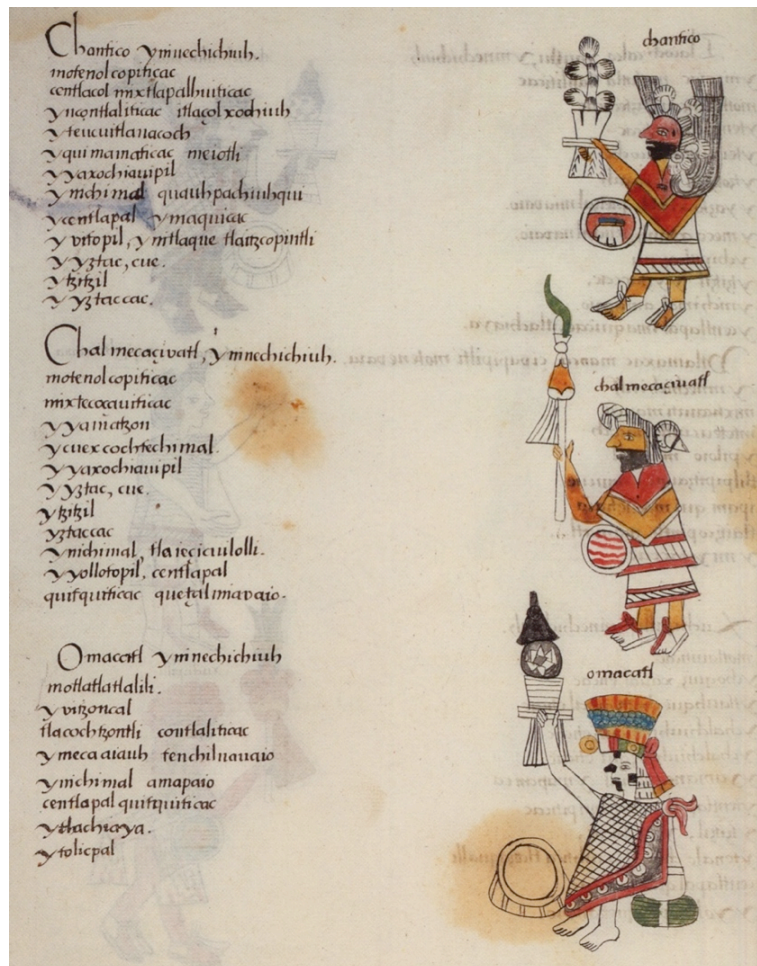 Chantico ymnechichiuh.
motenolcopiticac
centlacol mixtlapalhuiticac
yncontlaliticac itlaçolxochiuh
yteucuitlanacoch
yquimamaticac meiotli
yyaxochiauipil
ymchimal quauhpachiuhqui
ycentlapal ymaquicac
yvitopil, ymtlaque tlaitzcopintli
yyztac, cue.
ytzitzil
yyztaccac.
Chalmecaçivatl, ymnechichiuh.
motenolcopiticac
mixtecoçauiticac
yyamatzon
ycuexcochtechimal.
yyaxochiauipil
yyztac, cue.
ytzitzil
yztaccac
ymchimal, tlaieçicuilolli.
yyollotopil, centlapal
quitquiticac quetzalmiavaio.
Omacatl ymnechichiuh
motlatlatlalili.
yvitzoncal
tlacochtzontli contlaliticac
ymecaaiauh tenchilnavaio
ymchimal amapaio
centlapal quitquiticac
ytlachiaya.
ytolicpal
chantico
chalmecaçiuatl
omacatl